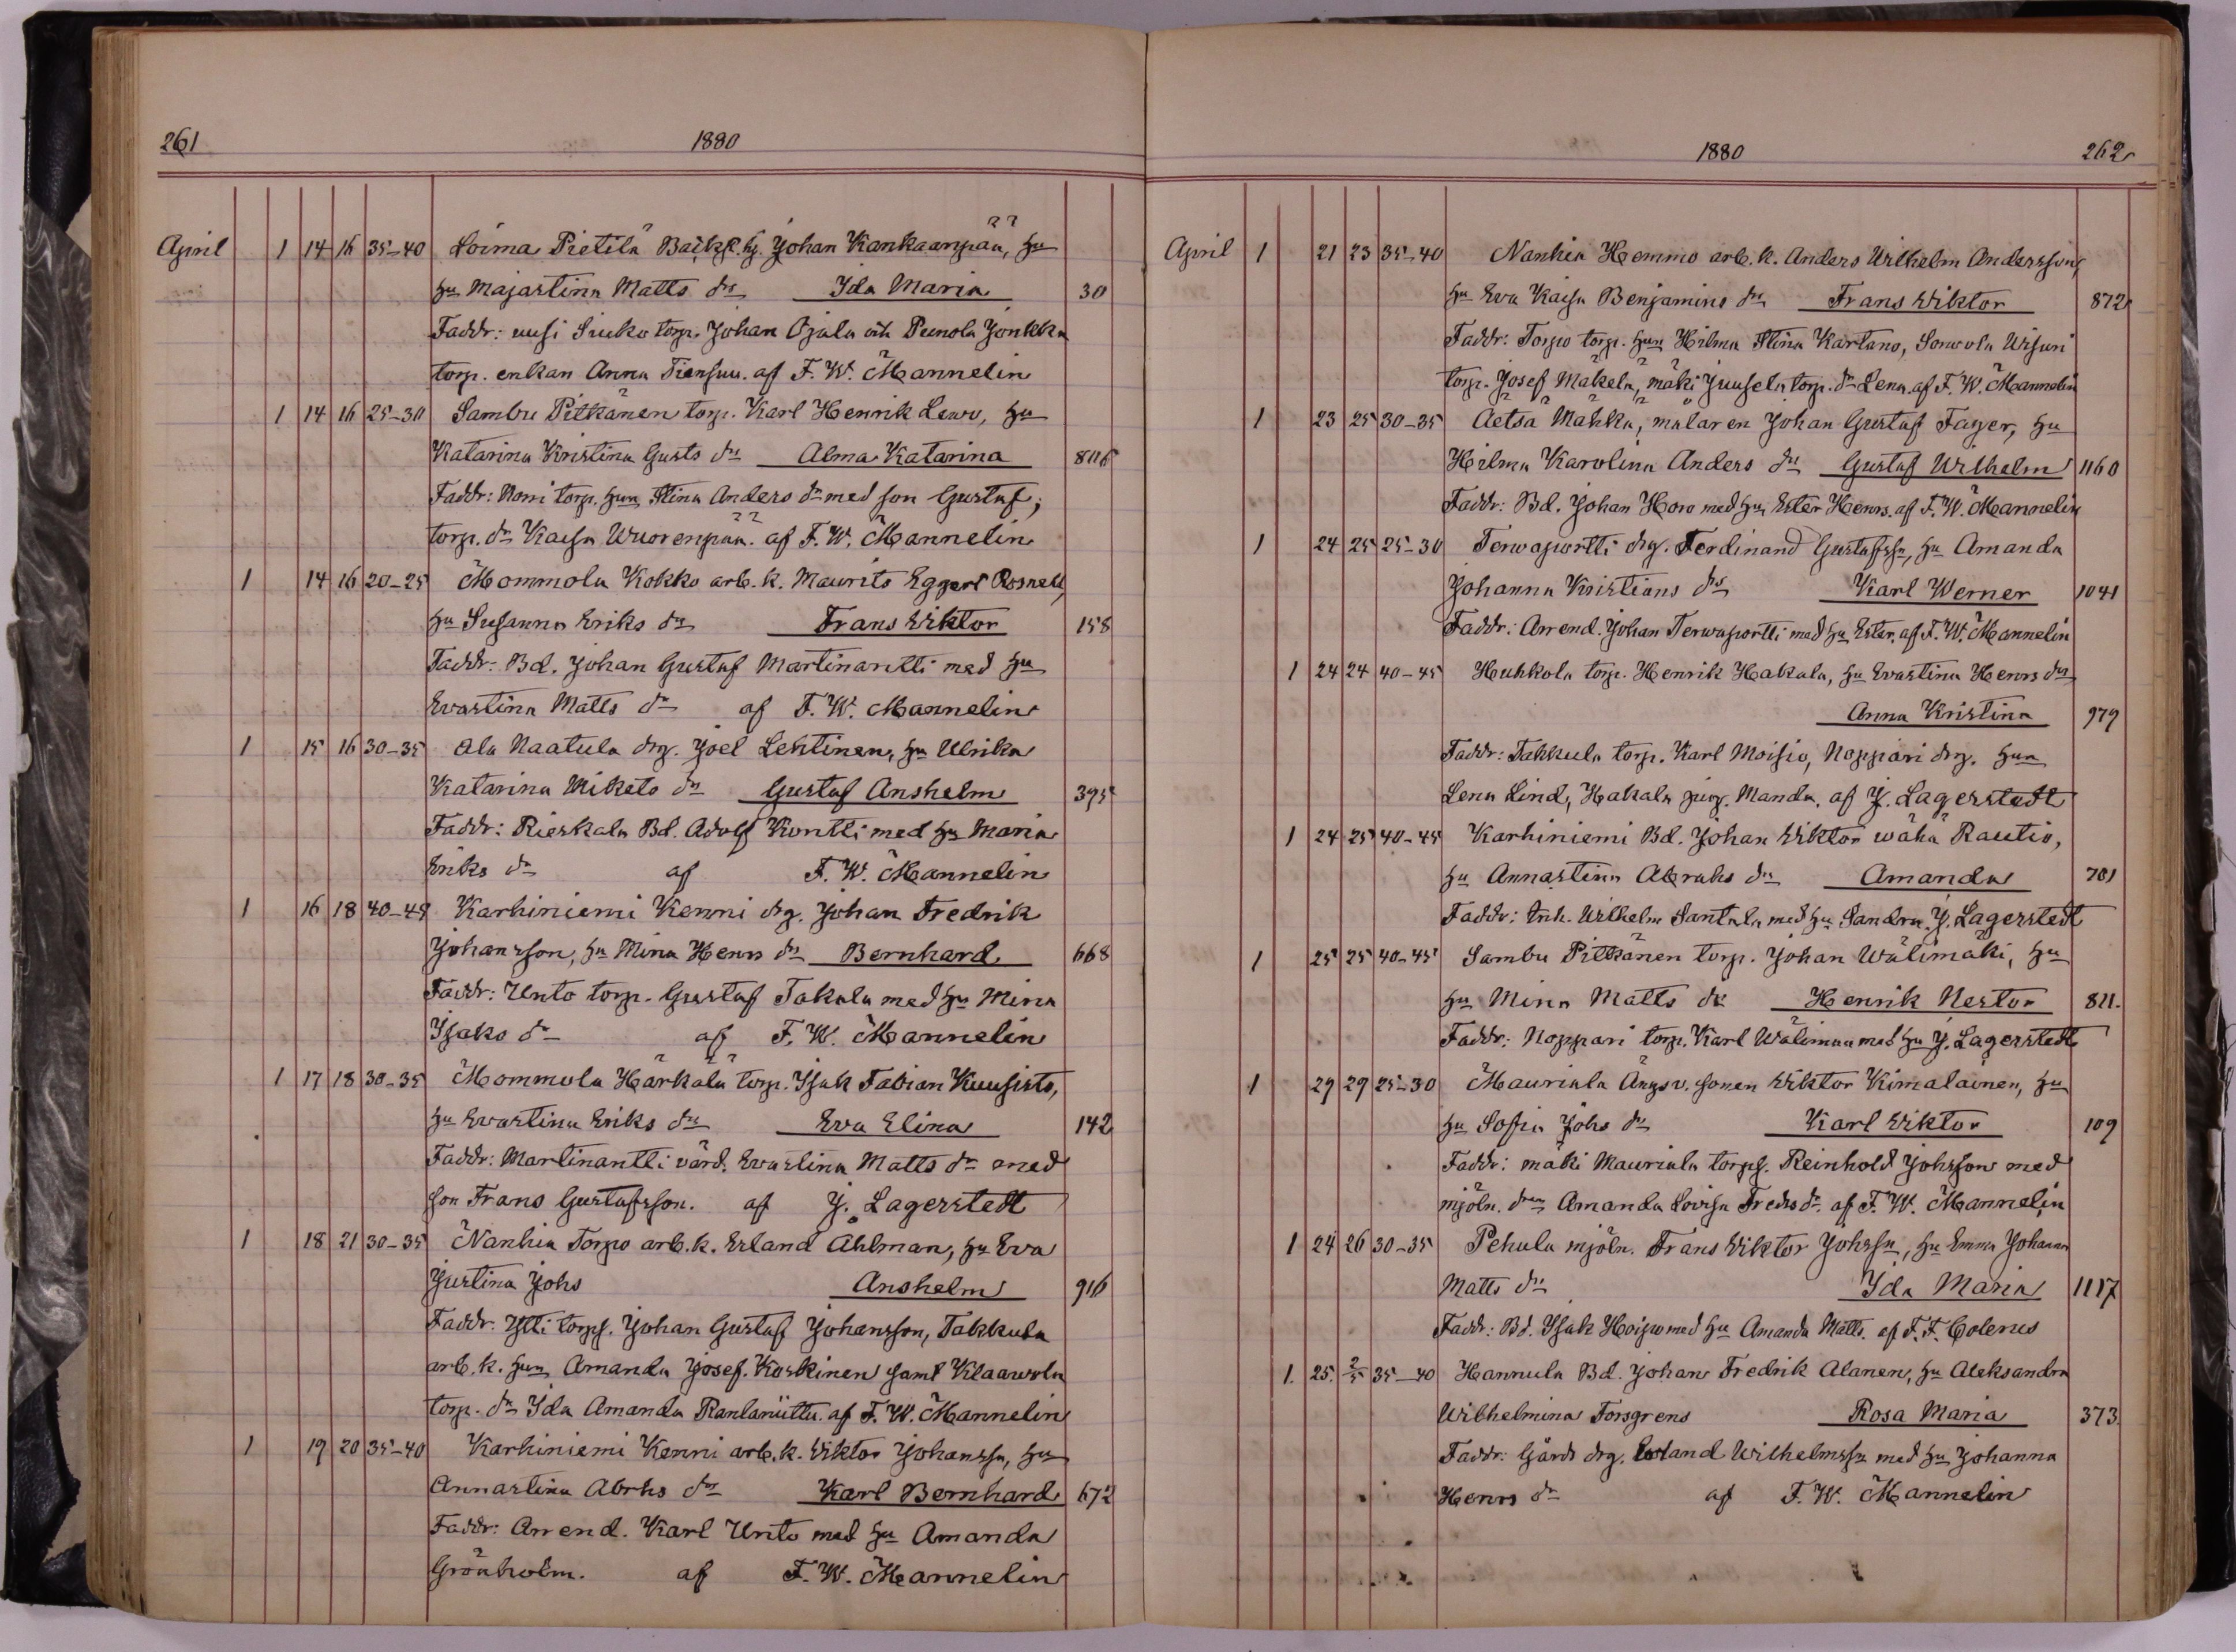 261 1880
April 1 14 16 35-40 Loima Pietilä Bäckk. hj. Johan Kankaanpää, hu
hu Majastina Matts dr Ida Maria 30
Faddr: uusi Siuko torp. Johan Ojala och Punola Jonkka
torp. enkan Anna Tiensuu. af F. W. Mannelin
1 14 16 25-30 Sambu Pitkänen torp. Karl Henrik Lewo, hu
Katarina Kristina Gusts dr Alma Katarina 806
Faddr: Noni torp. hun Stina Anders dr med son Gustaf;
torp. dr Kaisa Wuorenpää. af F. W. Mannelin
1 14 16 20-25 Mommola Kokko arb. k. Maurits Eggert Rosnell,
hu Susanna Eriks dr Frans Wiktor 158
Faddr: Bd. Johan Gustaf Martinantti med hu
Evastina Matts dr af F. W. Mannelin
1 15 16 30-35 Ala Naatula drg. Joel Lehtinen, hu Ulrika
Katarina Mikels dr Gustaf Anshelm 395
Faddr: Rieskala Bd. Adolf Kontti med hu Maria
Eriks dr af F. W. Mannelin
1 16 18 40-45 Karhiniemi Kenni drg. Johan Fredrik
Johansson, hu Mina Henrs dr Bernhard 668
Faddr: Unto torp. Gustaf Takala med hu Mina
Isaks dr af F. W. Mannelin
1 17 18 30-35 Mommola Härkälä torp. Isak Fabian Kuusisto,
hu Evastina Eriks dr Eva Elina 142
Faddr: Martinantti värd. Evastina Matts dr med
son Frans Gustafsson. af J. Lagerstedt
1 18 21 30-35 Nanhia Torpo arb. k. Erland Ahlman, hu Eva
Justina Johs Anshelm 916
Faddr: Ylli torps. Johan Gustaf Johansson, Takkula
arb. k. hun Amanda Josef. Koskinen samt Klaawola
torp. dr Ida Amanda Rantaniittu. af F. W. Mannelin
1 19 20 35-40 Karhiniemi Kenni arb. k. Wiktor Johanssn, hu
Annastina Abrhs dr Karl Bernhard 672
Faddr: Arrend. Karl Unto med hu Amanda
Grönholm. af F. W. Mannelin
1880 262
April 1 21 23 35-40 Nanhia Hemmo arb. k. Anders Wilhelm Andersson,
hu Eva Kaisa Benjamins dr Frans Wiktor 872
Faddr: Torpo torp. hun Hilma Stina Kartano, Sonvola Uisuri
torp. Josef Mäkelä, mäki Juusela torp. dr Lena. af F. W. Mannelin
1 23 25 30-35 Äetsä Mähkä, målaren Johan Gustaf Fager, hu
Hilma Karolina Anders dr Gustaf Wilhelm 1160
Faddr: Bd. Johan Horo med hu Ester Henrs. af F. W. Mannelin
1 24 25 25-30 Terwaportti drg. Ferdinand Gustafssn, hu Amanda
Johanna Kristians dr Karl Werner 1041
Faddr: Arrend. Johan Terwaportti med hu Ester. af F. W. Mannelin
1 24 24 40-45 Huhkola torp. Henrik Hakala, hu Evastina Henrs dr
Anna Kristina 979
Faddr: Takkula torp. Karl Moisio, Noppari drg. hun
Lena Lind, Hakala pig. Manda. af J. Lagerstedt
1 24 25 40-45 Karhiniemi Bd. Johan Wiktor wähä Rautio,
hu Annastina Abrahs dr Amanda 701
Faddr: Inh. Wilhelm Santala med hu Sandra. J. Lagerstedt
1 25 25 40-45 Sambu Pitkänen torp. Johan Wälimäki, hu
hu Mina Matts dr Henrik Nestor 811.
Faddr: Noppari torp. Karl Wälimaa med hu J. Lagerstedt
1 29 29 25-30 Mauriala Ångsv. sonen Wiktor Kimalainen, hu
hu Sofia Johs dr Karl Wiktor 109
Faddr: mäki Mauriala torps. Reinhold Johsson med
mjöln. drn Amanda Lovisa Freds dr. af F. W. Mannelin
1 24 26 30-35 Pehula mjöln. Frans Wiktor Johssn, hu Emma Johanna
Matts dr Ida Maria 1117
Faddr: Bd. Isak Hoipo med hu Amanda Matts. af F. F. Colerus
1. 25. 2/5 35-40 Hannula Bd. Johan Fredrik Alanen, hu Aleksandra
Wilhelmina Forsgrens Rosa Maria 373
Faddr: Gårds drg. Erland Wilhelmssn med hu Johanna
Henrs dr af F. W. Mannelin